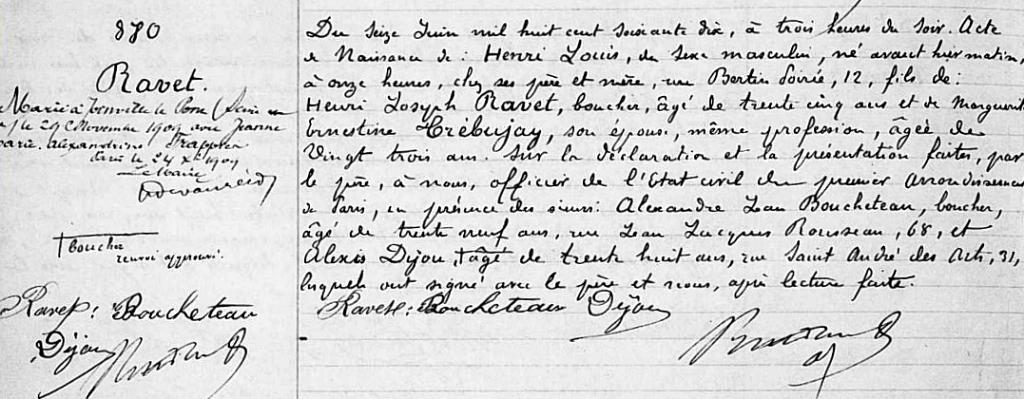 870
Ravet.
Marié à
le 24 Novembre 1909 avec Jeanne
Marie Alexandrine
Paris le 24 Xbre 1909
Le Maire
† boucher
renvoi approuvé.
Ravet: Boucheteau
Dijou
Du seize Juin mil huit cent soixante dix, à trois heures du soir. Acte
de Naissance de: Henri Louis, du sexe masculin, né avant hier matin,
à onze heures, chez ses père et mère, rue Bertin Poirée, 12, fils de:
Henri Joseph Ravet, boucher, âgé de trente cinq ans et de Marguerite
Ernestine Trébujay, son épouse, même profession, âgée de
Vingt trois ans. Sur la déclaration et la présentation faites, par
le père, à nous, officier de l'Etat civil du premier arrondissement
de Paris, en présence des sieurs: Alexandre Jean Boucheteau, boucher,
âgé de trente neuf ans, rue Jean Jacques Rousseau, 68, et
Alexis Dijou, † âgé de trente huit ans, rue Saint André des Arts, 31,
lesquels ont signé avec le père et nous, après lecture faite.
Ravet: Boucheteau Dijou